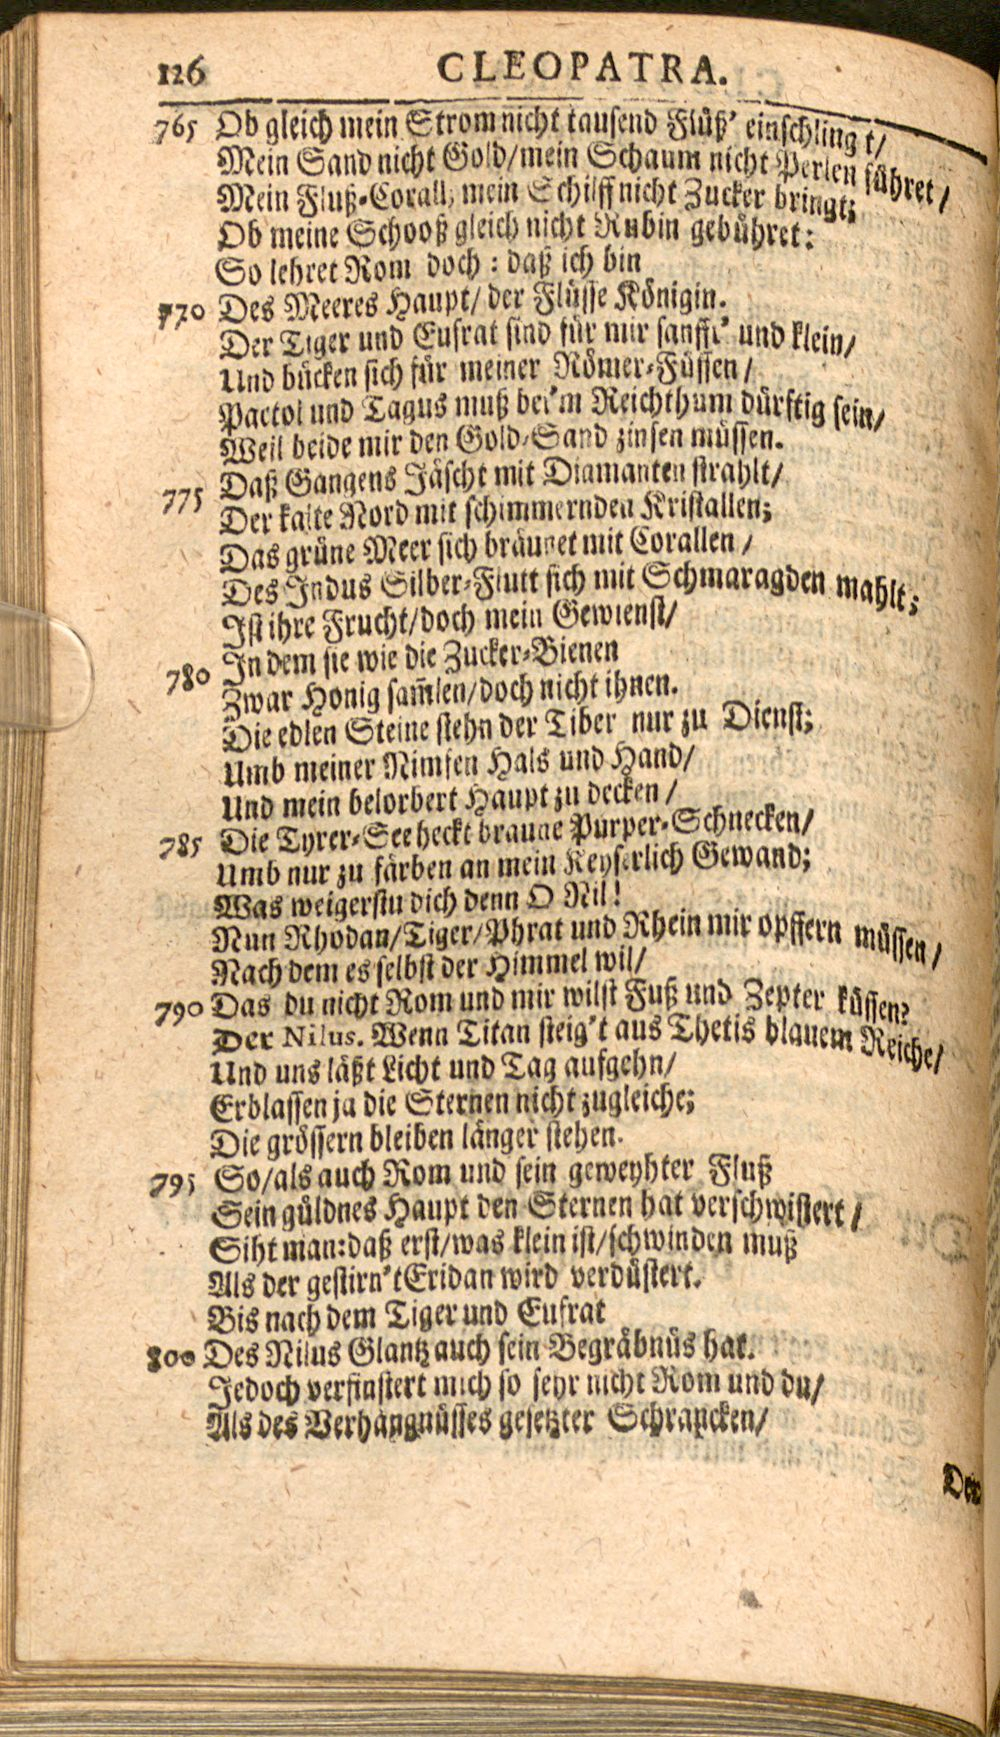 126 CLEOPATRA.
765 Ob gleich mein Strom nicht tausend Flüß' einschlingt/
Mein Sand nicht Gold/mein Schaum nicht Perlen führet/
Mein Fluß-Corall, mein Schilff nicht Zucker bringt;
Ob meine Schooß gleich nicht Rubin gebühret:
So lehret Rom doch: daß ich bin
770 Des Meeres Haupt/ der Flüsse Königin.
Der Tiger und Eufrat sind für mir sanfft' und klein/
Und bücken sich für meiner Römer-Füssen/
Pactol und Tagus muß bei'm Reichthum dürftig sein/
Weil beide mir den Gold-Sand zinsen müssen.
775 Daß Gangens Jäscht mit Diamanten strahlt/
Der kalte Nord mit schimmernden Kristallen;
Das grüne Meer sich bräunet mit Corallen/
Des Indus Silber-Flutt sich mit Schmaragden mahlt;
Ist ihre Frucht/doch mein Gewienst/
780 In dem sie wie die Zucker-Bienen
Zwar Honig sam̃len/doch nicht ihnen.
Die edlen Steine stehn der Tiber nur zu Dienst;
Umb meiner Nimfen Hals und Hand/
Und mein belorbert Haupt zu decken/
785 Die Tyrer-See heckt braune Purper-Schnecken/
Umb nur zu färben an mein Keyserlich Gewand;
Was weigerstu dich denn O Nil!
Nun Rhodan/Tiger/Phrat und Rhein mir opffern müssen/
Nach dem es selbst der Himmel wil/
790 Das du nicht Rom und mir wilst Fuß und Zepter küssen?
Der Nilus. Wenn Titan steig't aus Thetis blauem Reiche/
Und uns läßt Licht und Tag aufgehn/
Erblassen ja die Sternen nicht zugleiche;
Die grössern bleiben länger stehen.
795 So/als auch Rom und sein geweyhter Fluß
Sein güldnes Haupt den Sternen hat verschwistert/
Siht man:daß erst/was klein ist/schwinden muß
Als der gestirn't Eridan wird verdüstert.
Bis nach dem Tiger und Eufrat
800 Des Nilus Glantz auch sein Begräbnüs hat.
Jedoch verfinstert mich so sehr nicht Rom und du/
Als des Verhängnüsses gesetzter Schrancken/